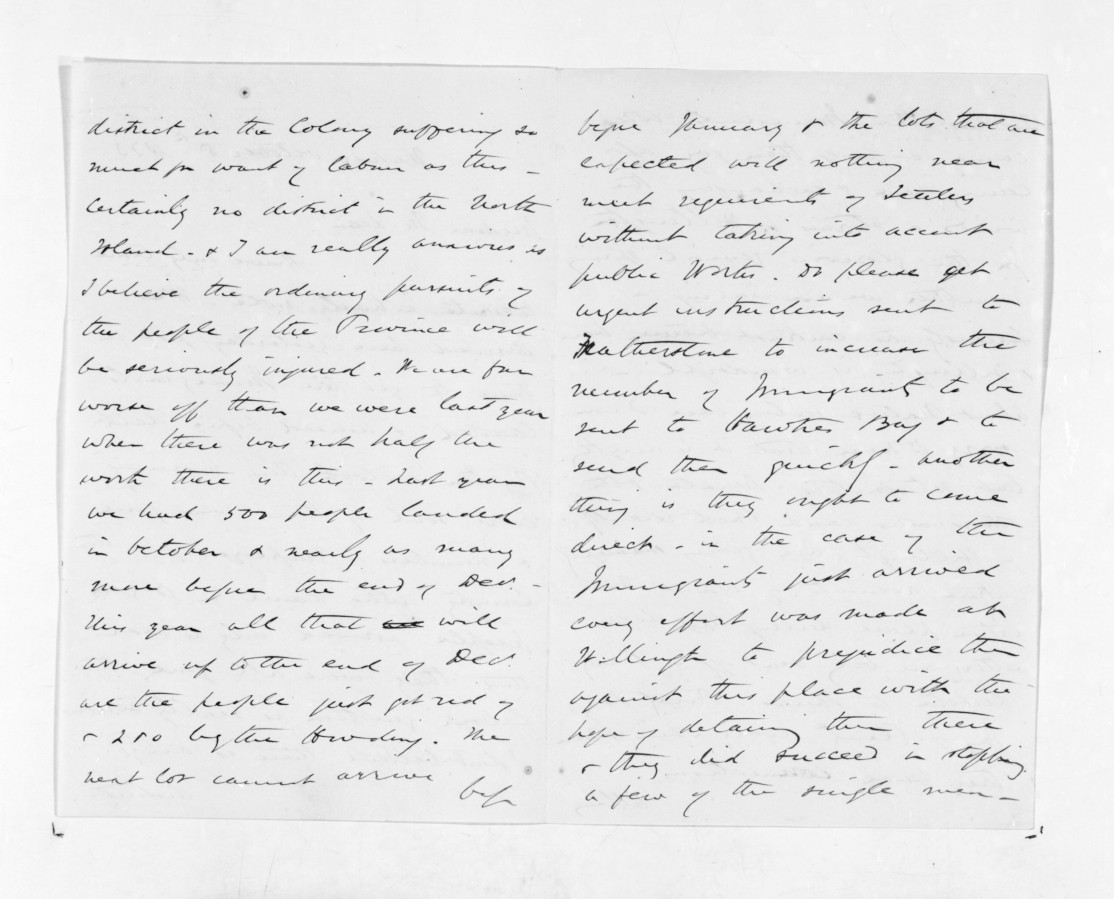 district in the Colony suffering so
much for want of labour as this -
Certainly no district in the North
Island - & I am really anxious as
I believe the ordinary pursuits of
the people of the Province will
be seriously injured. We are far
worse off than we were last year
when there was not half the
work there is this - Last year
we had 500 people landed
in October & nearly as many
more before the end of Decr.
This year all that will
arrive up to the end of Decr.
are the people just got rid of
& 250 by the Hovding. The
next lot cannot arrive
befr
before January & the lots that are
expected will nothing near
meet requirients of Settlers
without taking into account
public Works. Do please get
urgent instructions sent to
Featherstone to increase the
number of Immigrants to be
sent to Hawkes Bay & to
send them quickly - another
thing is they ought to come
direct - in the case of the
Immigrants just arrived
every effort was made at
Wellingtn to prejudice them
against this place with the
hope of detaining them there
& they did succeed in stopping
a few of the single men -